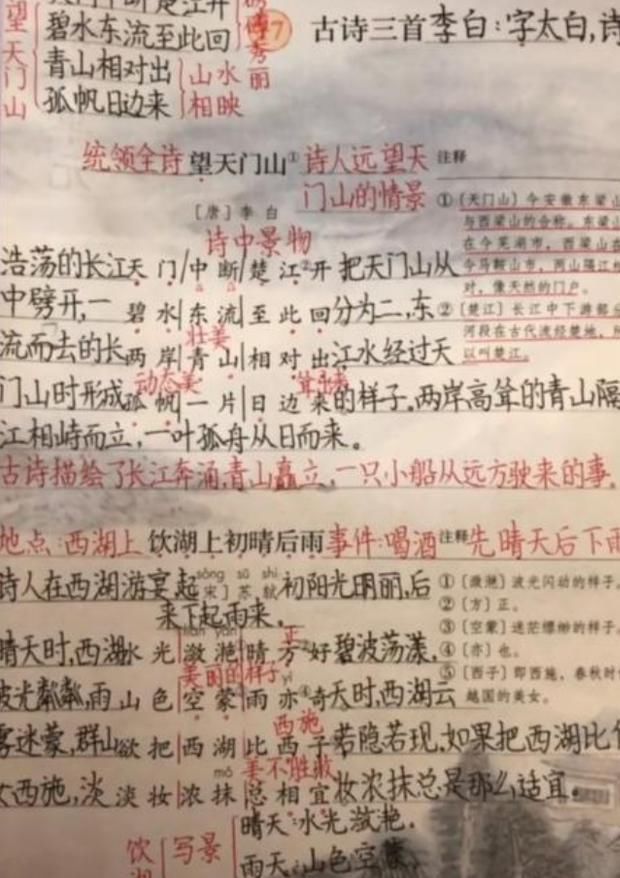 望天门山
碧水东流至此回
青山相对出
孤帆日边来
山水
相映
秀丽
17 古诗三首 李白:字太白,诗
统领全诗 望天门山① 诗人远望天
门山的情景
[唐] 李白
诗中景物
注释
① 〔天门山〕今安徽东梁山
与西梁山的合称。东梁山
在今芜湖市,西梁山在
今马鞍山市,两山隔江相
对,像天然的门户。
② 〔楚江〕长江中下游部分
河段在古代流经楚地,所
以叫楚江。
浩荡的长江 天门/中断/楚江②开 把天门山从
中劈开,一 碧水|东流|至此回 分为二,东
壮美
流而去的长 两岸|青山|相对出 江水经过天
动态美
门山时形成 孤帆|一片|日边来 的样子。两岸高耸的青山隔
江相峙而立,一叶孤舟从日而来。
古诗描绘了长江奔涌,青山矗立,一只小船从远方驶来的事。
地点:西湖上 饮湖上初晴后雨 事件:喝酒 注释 先晴天后下雨
sòng sū shì
诗人在西湖游宴起 [宋] 苏轼 初阳光明丽,后
来下起雨来。
① 〔潋滟〕波光闪动的样子。
② 〔方〕正。
③ 〔空蒙〕迷茫缥缈的样子。
④ 〔亦〕也。
⑤ 〔西子〕即西施,春秋时
越国的美女。
liàn yàn
正
晴天时,西湖 水光|潋滟|晴方②好 碧波荡漾,
美丽的样子
yì
波光粼粼,雨 山色|空蒙|雨亦④奇 天时,西湖云
西施
雾迷蒙,群山 欲把|西湖|比西子 若隐若现,如果把西湖比作
mǒ
美不胜收
西施,淡 淡妆|浓抹|总相宜 妆浓抹总是那么适宜。
饮
湖
写景
晴天:水光潋滟。
雨天:山色空蒙。